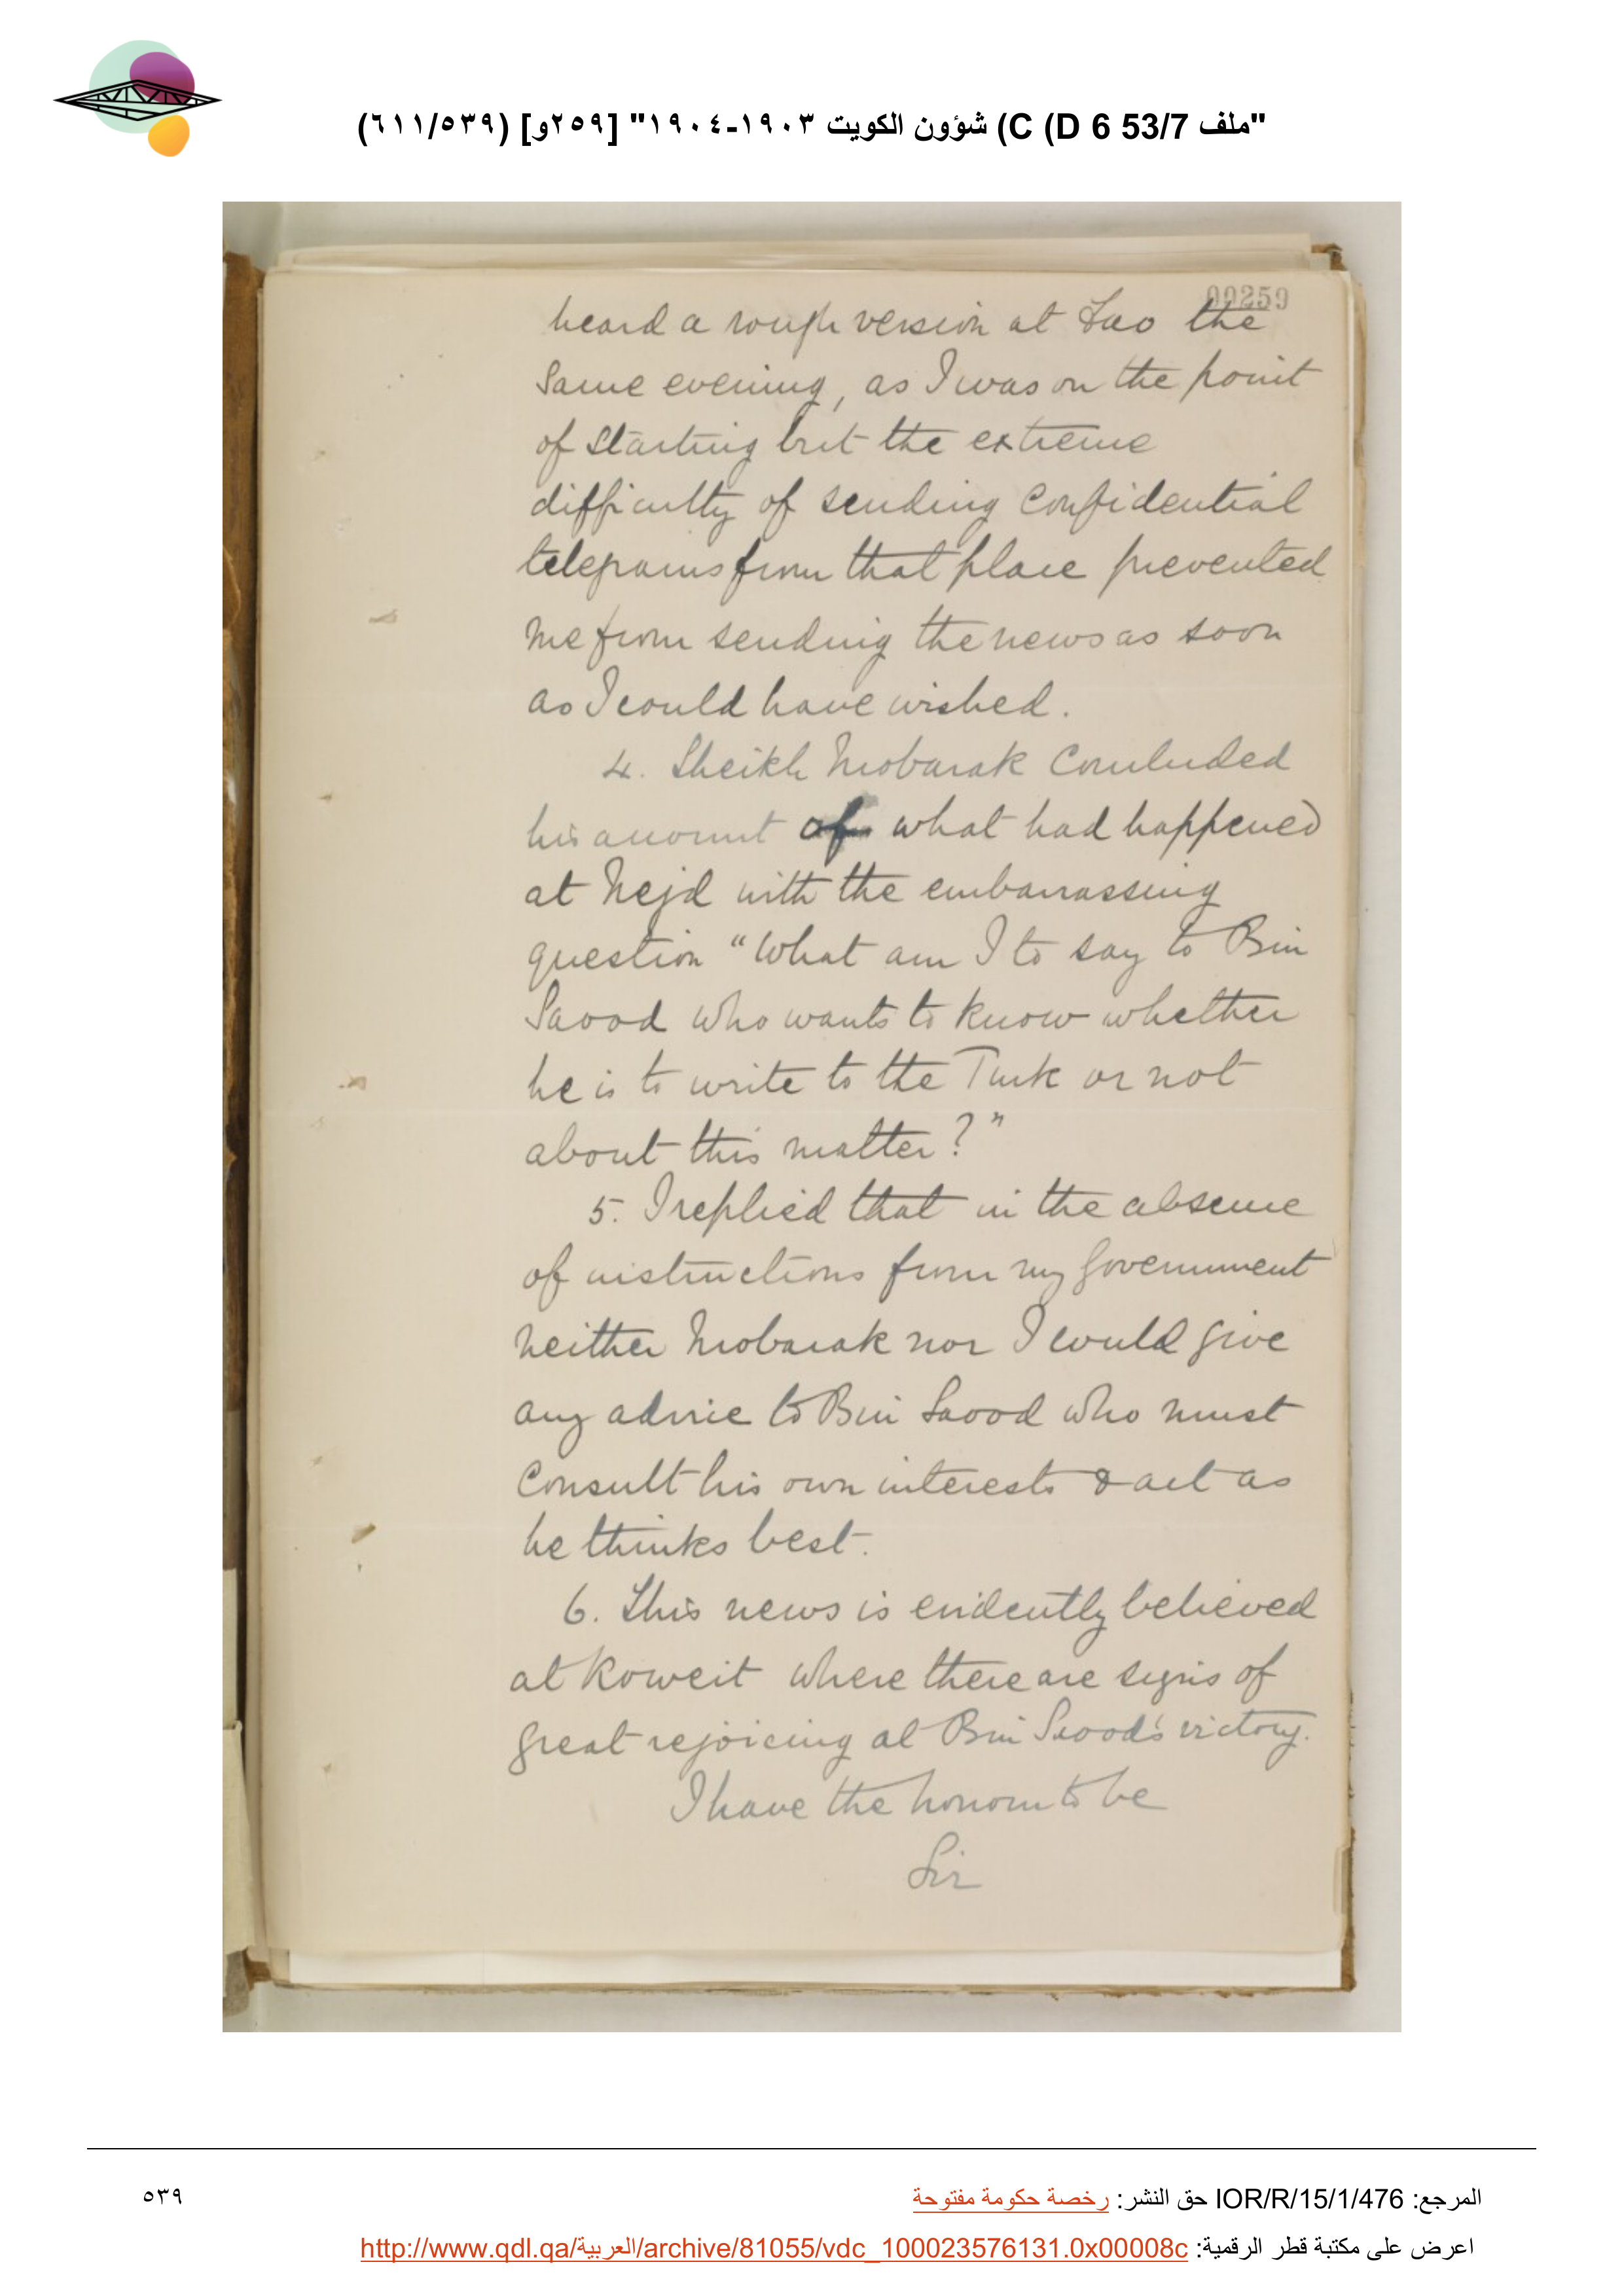 "ملف 53/7 D 6) C) شؤون الكويت ١٩٠٣-١٩٠٤" [٢٥٩و] (٦١١/٥٣٩)
00259
heard a rough version at Fao the
same evening, as I was on the point
of starting but the extreme
difficulty of sending confidential
telegrams from that place prevented
me from sending the news as soon
as I could have wished.
4. Sheikh Mobarak concluded
his account of what had happened
at Nejd with the embarrassing
question "What am I to say to Bin
Saood who wants to know whether
he is to write to the Turk or not
about this matter?"
5. I replied that in the absence
of instructions from my Government
neither Mobarak nor I could give
any advice to Bin Saood who must
consult his own interests & act as
he thinks best.
6. This news is evidently believed
at Koweit where there are signs of
great rejoicing at Bin Saood's victory.
I have the honour to be
Sir
المرجع: IOR/R/15/1/476 حق النشر: رخصة حكومة مفتوحة
٥٣٩
اعرض على مكتبة قطر الرقمية: http://www.qdl.qa/العربية/archive/81055/vdc_100023576131.0x00008c